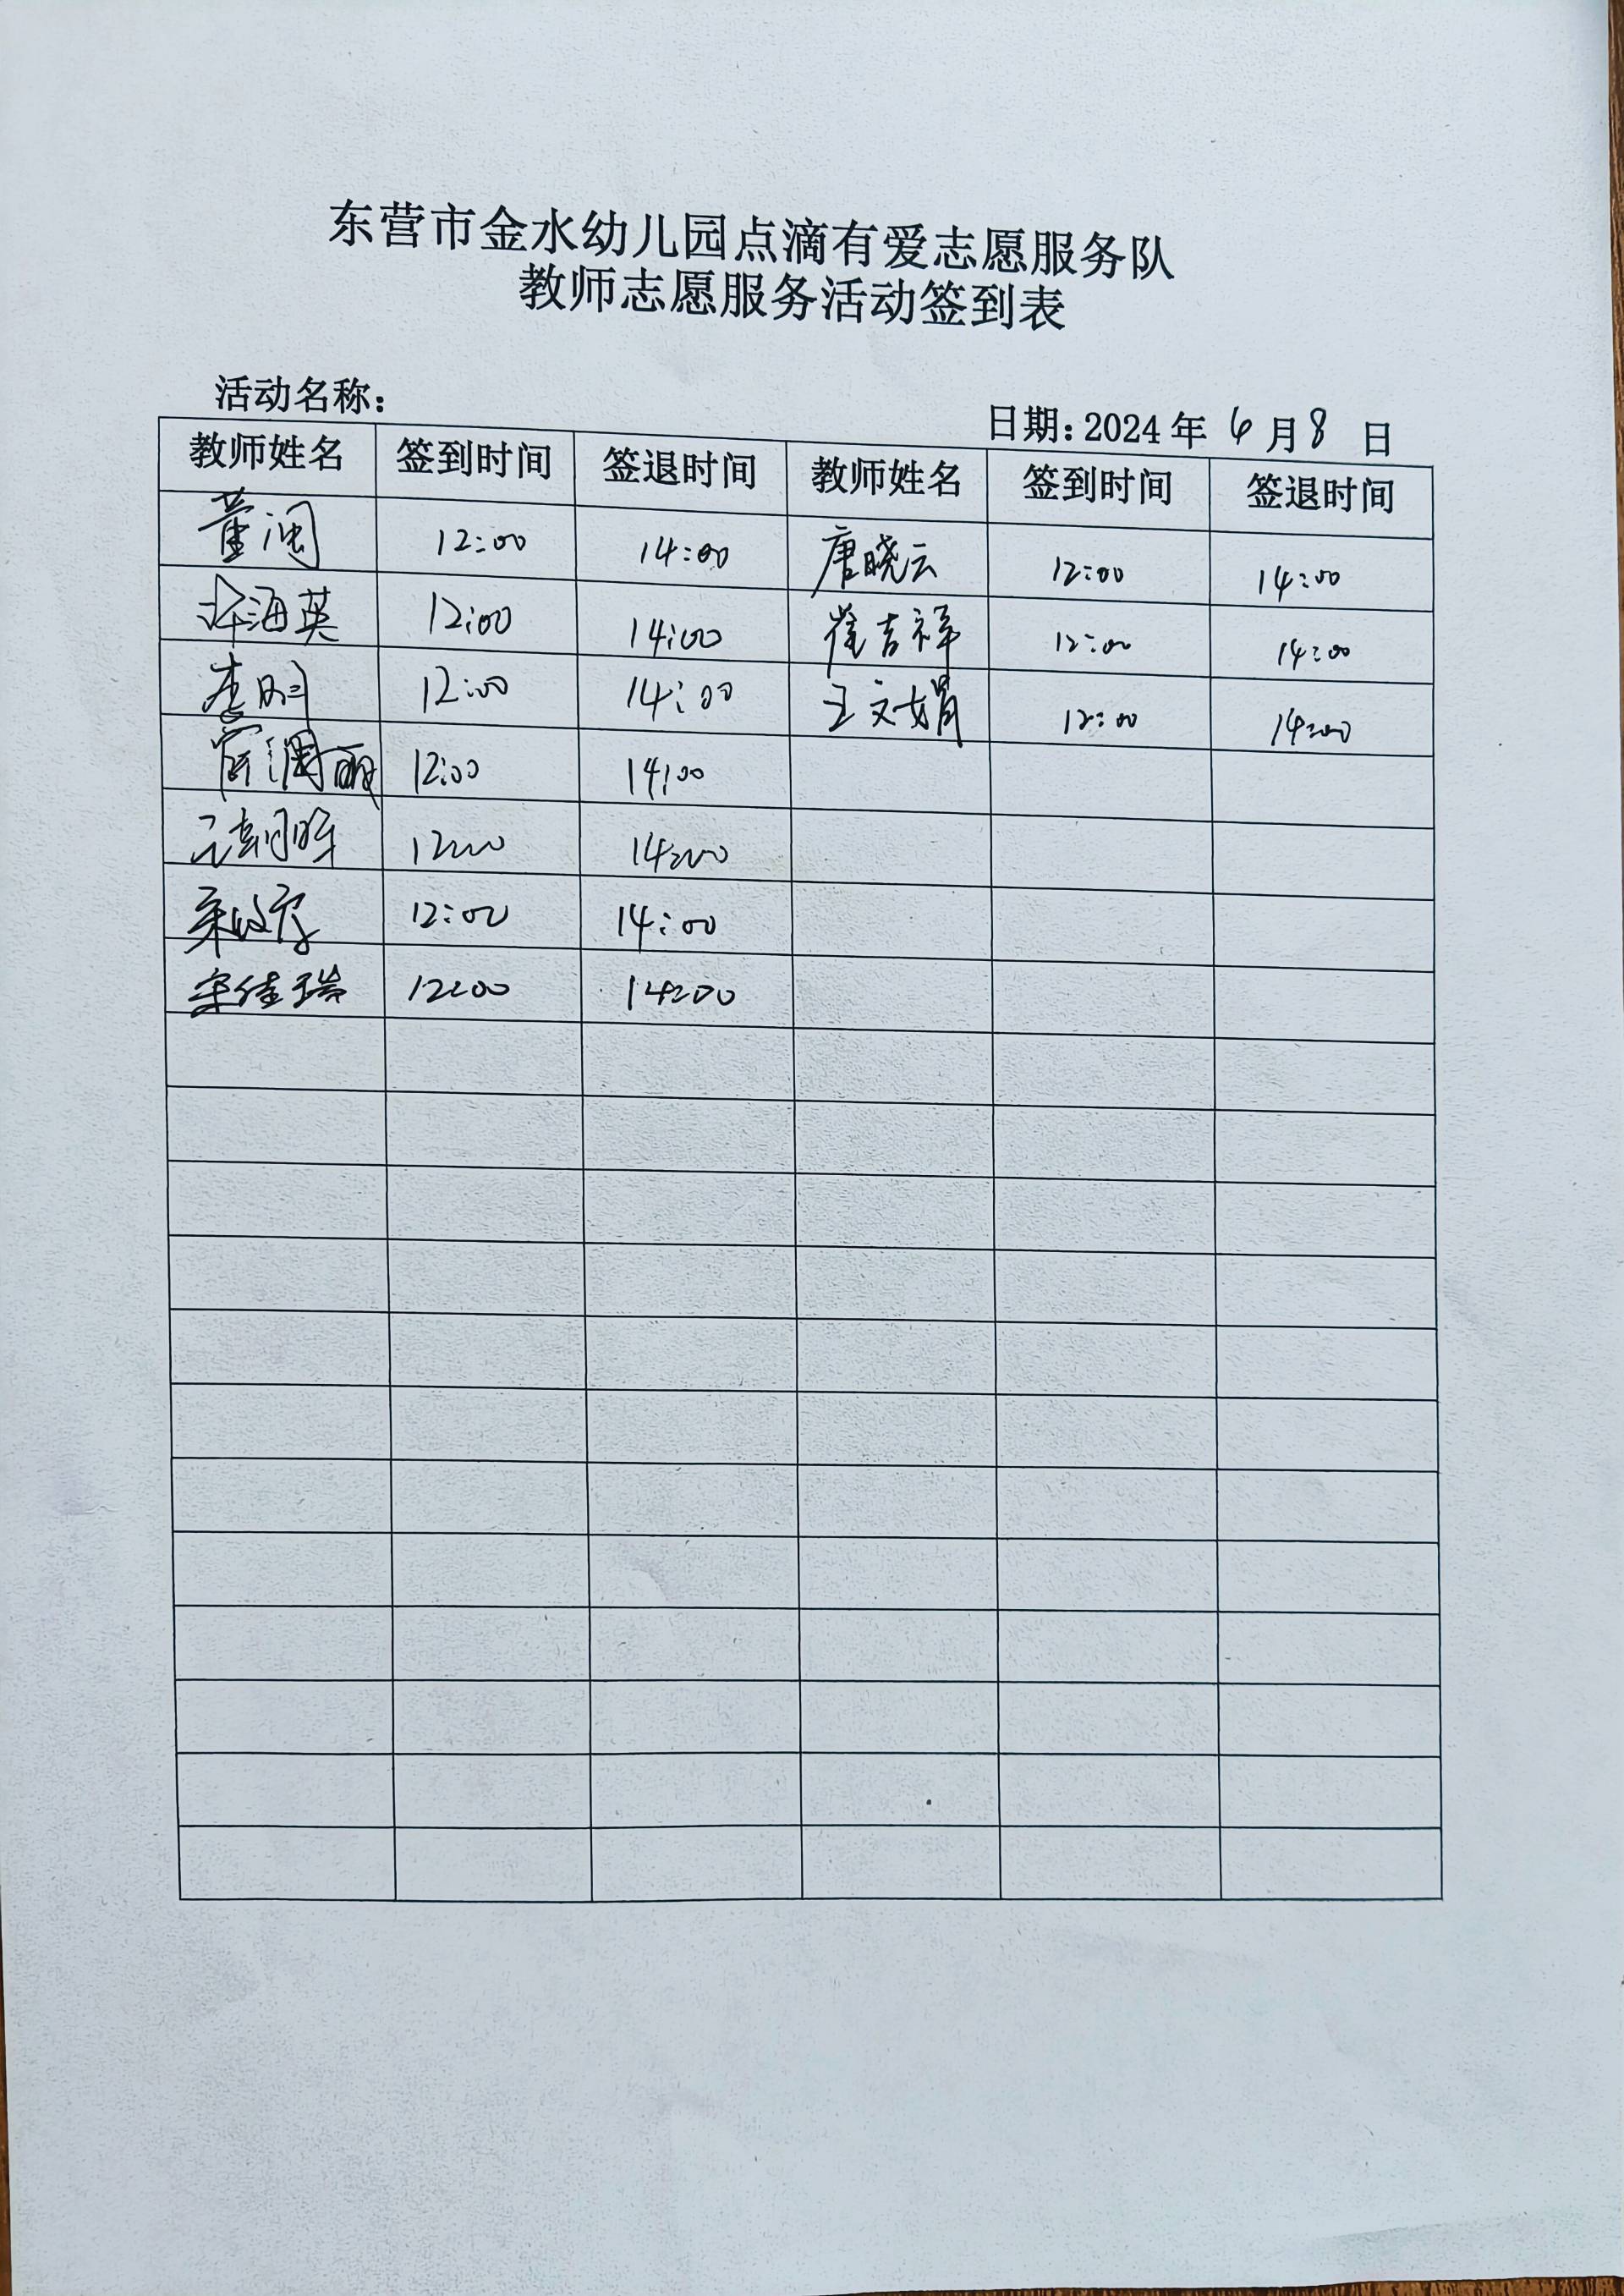 东营市金水幼儿园点滴有爱志愿服务队
教师志愿服务活动签到表
活动名称：
日期：2024年 6月8 日
教师姓名 签到时间 签退时间 教师姓名 签到时间 签退时间
董润 12:00 14:00 唐晓云 12:00 14:00
许海英 12:00 14:00 崔吉祥 12:00 14:00
12:00 14:00 王文娟 12:00 14:00
12:00 14:00
12:00 14:00
12:00 14:00
宋佳瑞 12:00 14:00